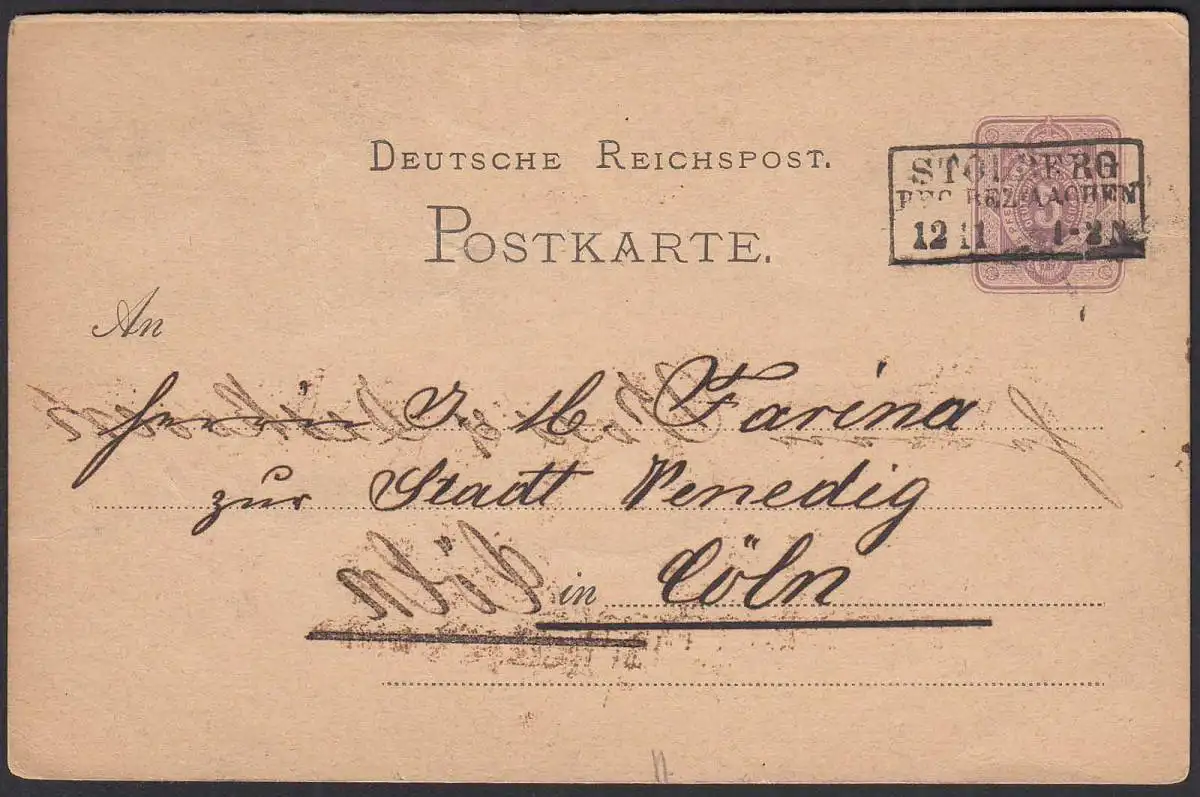 DEUTSCHE REICHSPOST.
POSTKARTE.
STOLBERG
REG. BEZ. AACHEN
12 11 1-2 N
An
Herrn J. M. Farina
zur Stadt Venedig
in Cöln